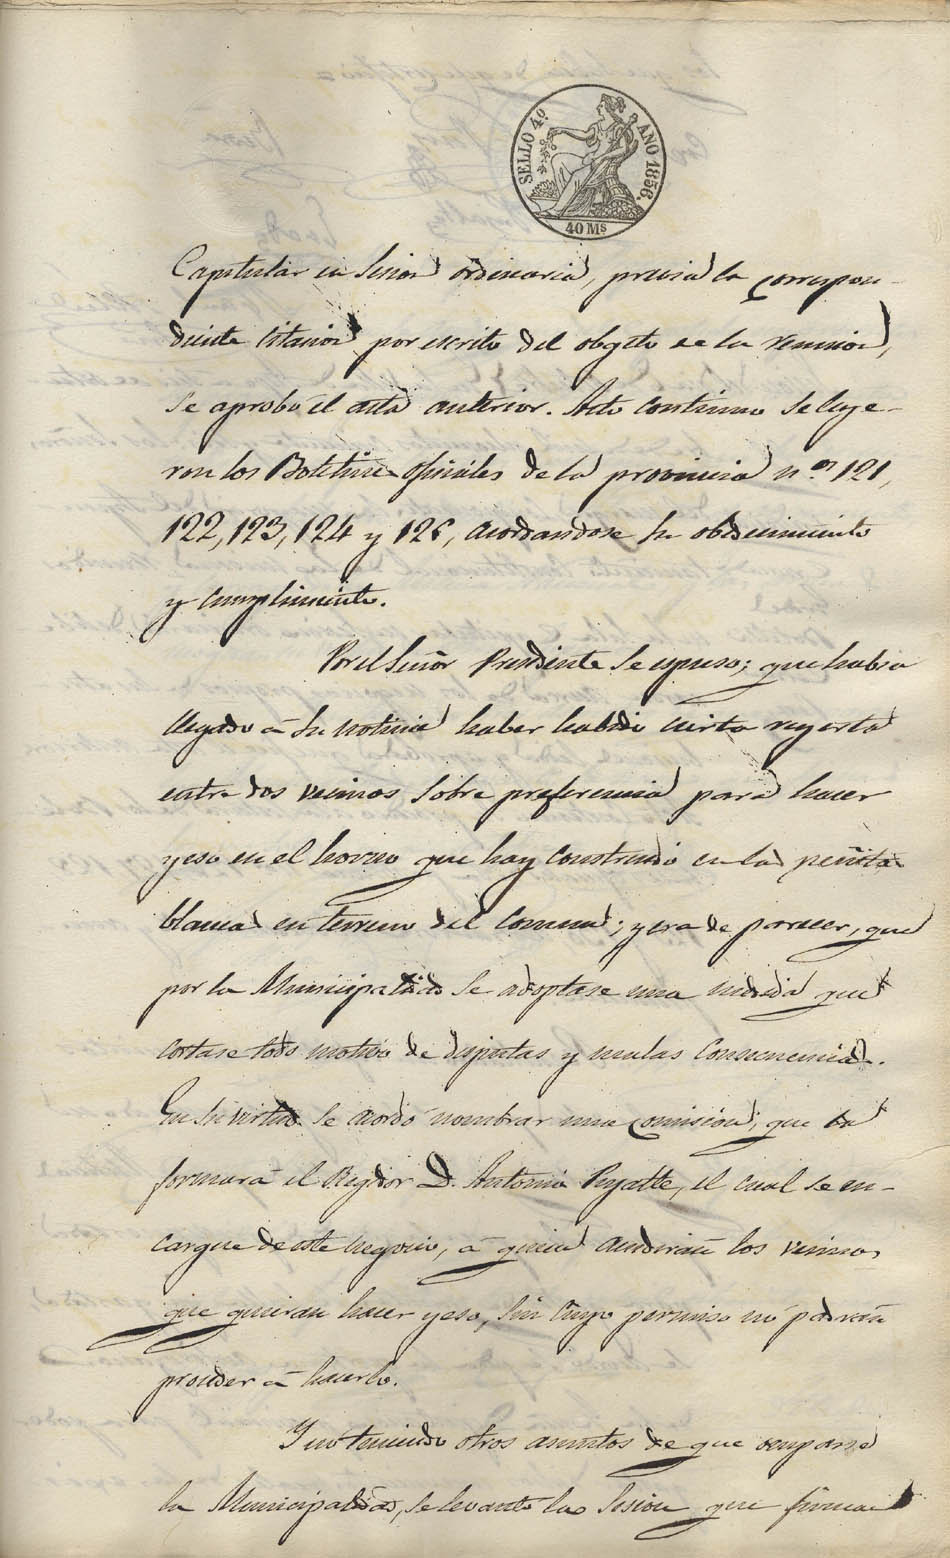 SELLO 4º. AÑO 1856.
40 Ms
Capitular en sesion ordinaria, previa la correspon-
diente citacion por escrito del obgeto de la reunion,
se aprobó el acta anterior. Acto continuo se leye-
ron los Boletines oficiales de la provincia n.os 121,
122, 123, 124 y 126, acordandose su obedecimiento
y cumplimiento.
Por el Señor Presidente se espuso; que habia
llegado á su noticia haber habido cierta reyerta
entre dos vecinos sobre preferencia para hacer
yeso en el horno que hay construido en la peñita
blanca en terreno del comun; y era de parecer, que
por la Municipalidad se adoptase una medida que
cortase todo motivo de disputas y malas consecuencias.
En su virtud se acordó nombrar una comision, que la
formará el Regidor D. Antonio Puyatte, el cual se en-
cargue de este negocio, á quien acudirán los vecinos
que quieran hacer yeso, sin cuyo permiso no podrán
proceder á hacerlo.
Y no teniendo otros asuntos de que ocuparse
la Municipalidad, se levantó la sesion que firman